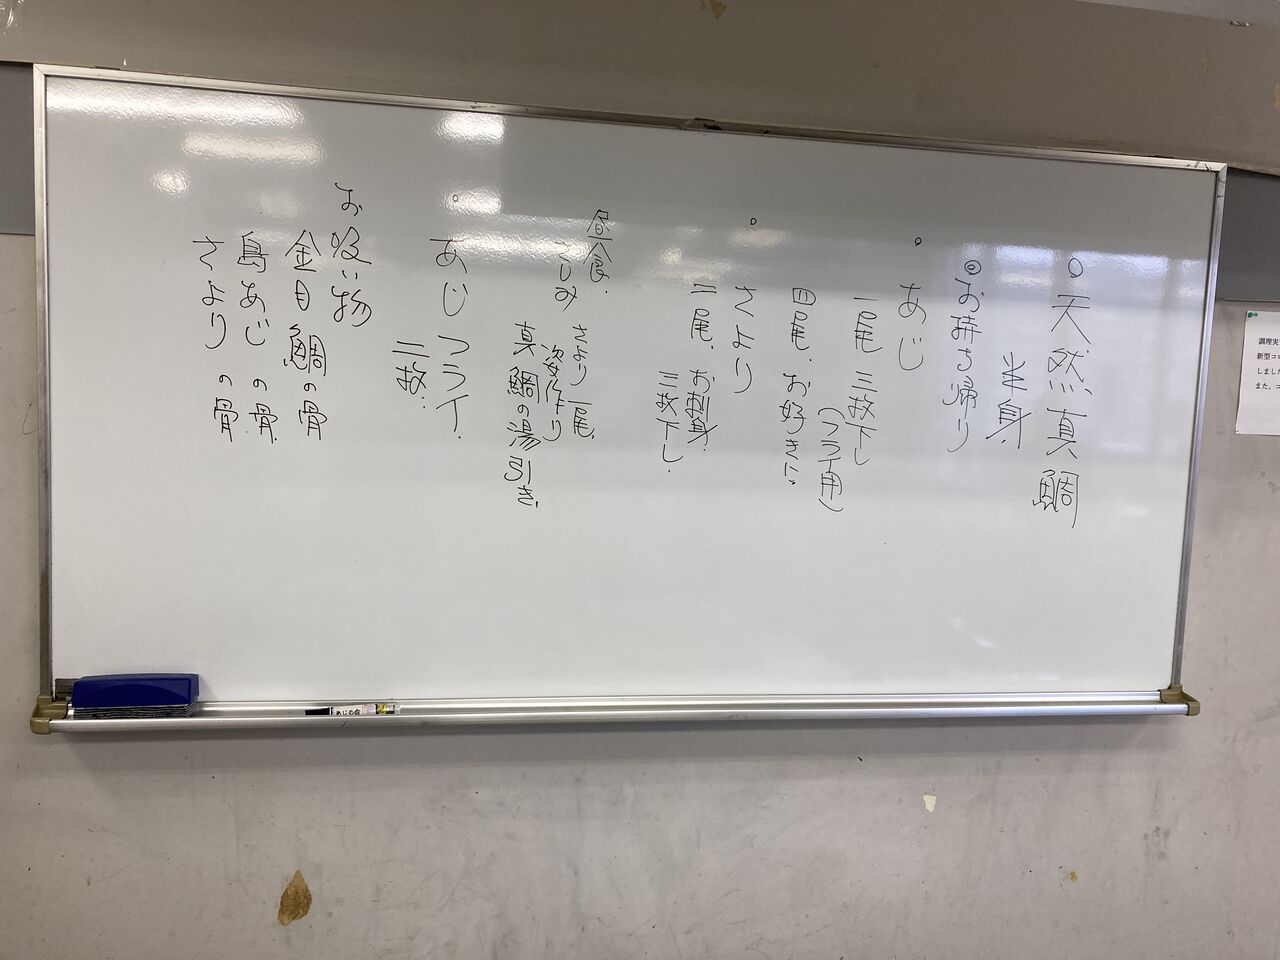 。天然真鯛
半身
◎お持ち帰り
。あじ
一尾 三枚下し
(フライ用)
四尾、お好きに。
。さより
二尾、お刺身
三枚下し.
昼食.
さしみ
さより一尾、
姿作り
真鯛の湯引き.
。あじフライ.
二枚.
お吸い物
金目鯛の骨
島あじの骨.
さよりの骨
あじの会
調理実
新型コロ
しました
また、コ